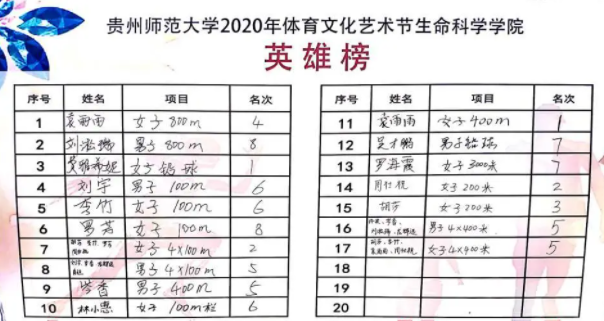 贵州师范大学2020年体育文化艺术节生命科学学院
英雄榜
序号 姓名 项目 名次
1 袁雨雨 女子 800m 4
2 男子 800m 8
3 女子 铅球 1
4 刘宇 男子 100m 6
5 李竹 女子 100m 6
6 女子 100m 8
7 女子 4×100m 2
8 男子 4×100m 5
9 岑香 男子 400m 5
10 林小惠 女子 100m栏 6
序号 姓名 项目 名次
11 袁雨雨 女子 400m 1
12 男子 铅球 7
13 罗海霞 女子 3000米 7
14 女子 200米 2
15 胡芬 女子 200米 3
16 男子 4×400米 5
17 女子 4×400米 5
18
19
20